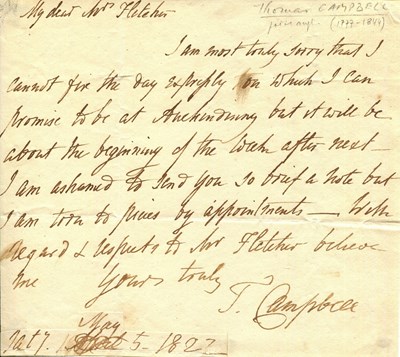 My dear Mrs Fletcher
Thomas CAMPBELL
(1777-1844)
I am most truly sorry that I
cannot fix the day expressly on which I can
promise to be at Auchindinny but it will be
about the beginning of the Week after next
I am ashamed to send you so brief a note but
I am torn to pieces by appointments — With
regard & respects to Mr Fletcher believe
me Yours truly
T. Campbell
May
5 - 182